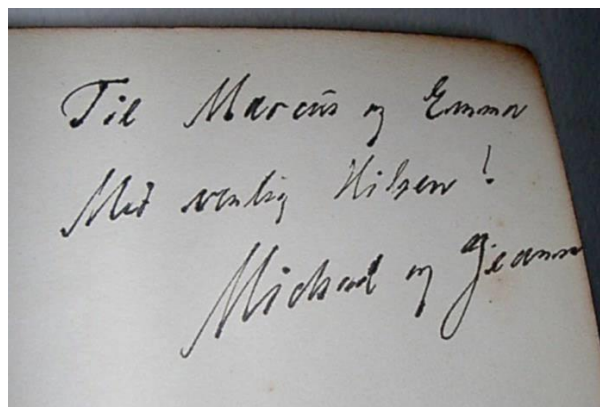 Til Marcus og Emma
Med venlig Hilsen!
Michael og Jeanne